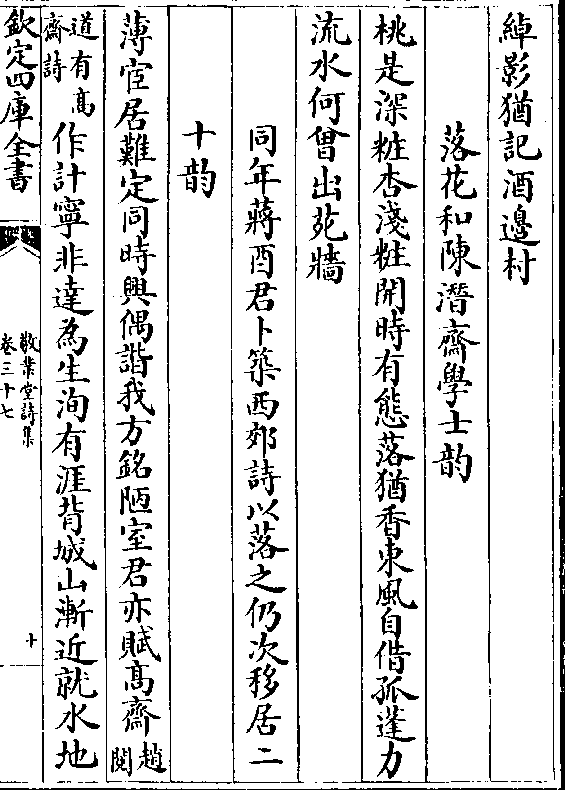 綽影猶記酒邊村
落花和陳潛齋學士韵
桃是深粧杏淺粧開時有態落猶香東風自借孤蓬力
流水何曾出苑牆
同年蔣酉君卜築西郊詩以落之仍次移居二
十韵
薄宦居難定同時興偶諧我方銘陋室君亦賦高齋趙閱
道有高齋詩作計寧非達為生洵有涯背城山漸近就水地
欽定四庫全書
敬業堂詩集
卷三十七
十